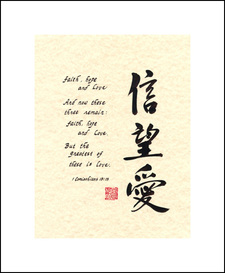 Faith, hope
and Love.
And now these
three remain:
Faith, hope
and Love.
But the
greatest of
these is Love.
1 Corinthians 13:13
信
望
愛